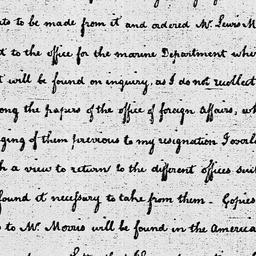 ts to be made from it and ordered Mr. Lewis M
t to the office for the marine Department wher
t will be found on inquiry, as I do not recollect
ong the papers of the office of foreign Affairs, wh
ging of them previous to my resignation I overlo
h a view to return to the different offices such
found it necessary to take from them. Copies
s to Mr. Morris will be found in the America